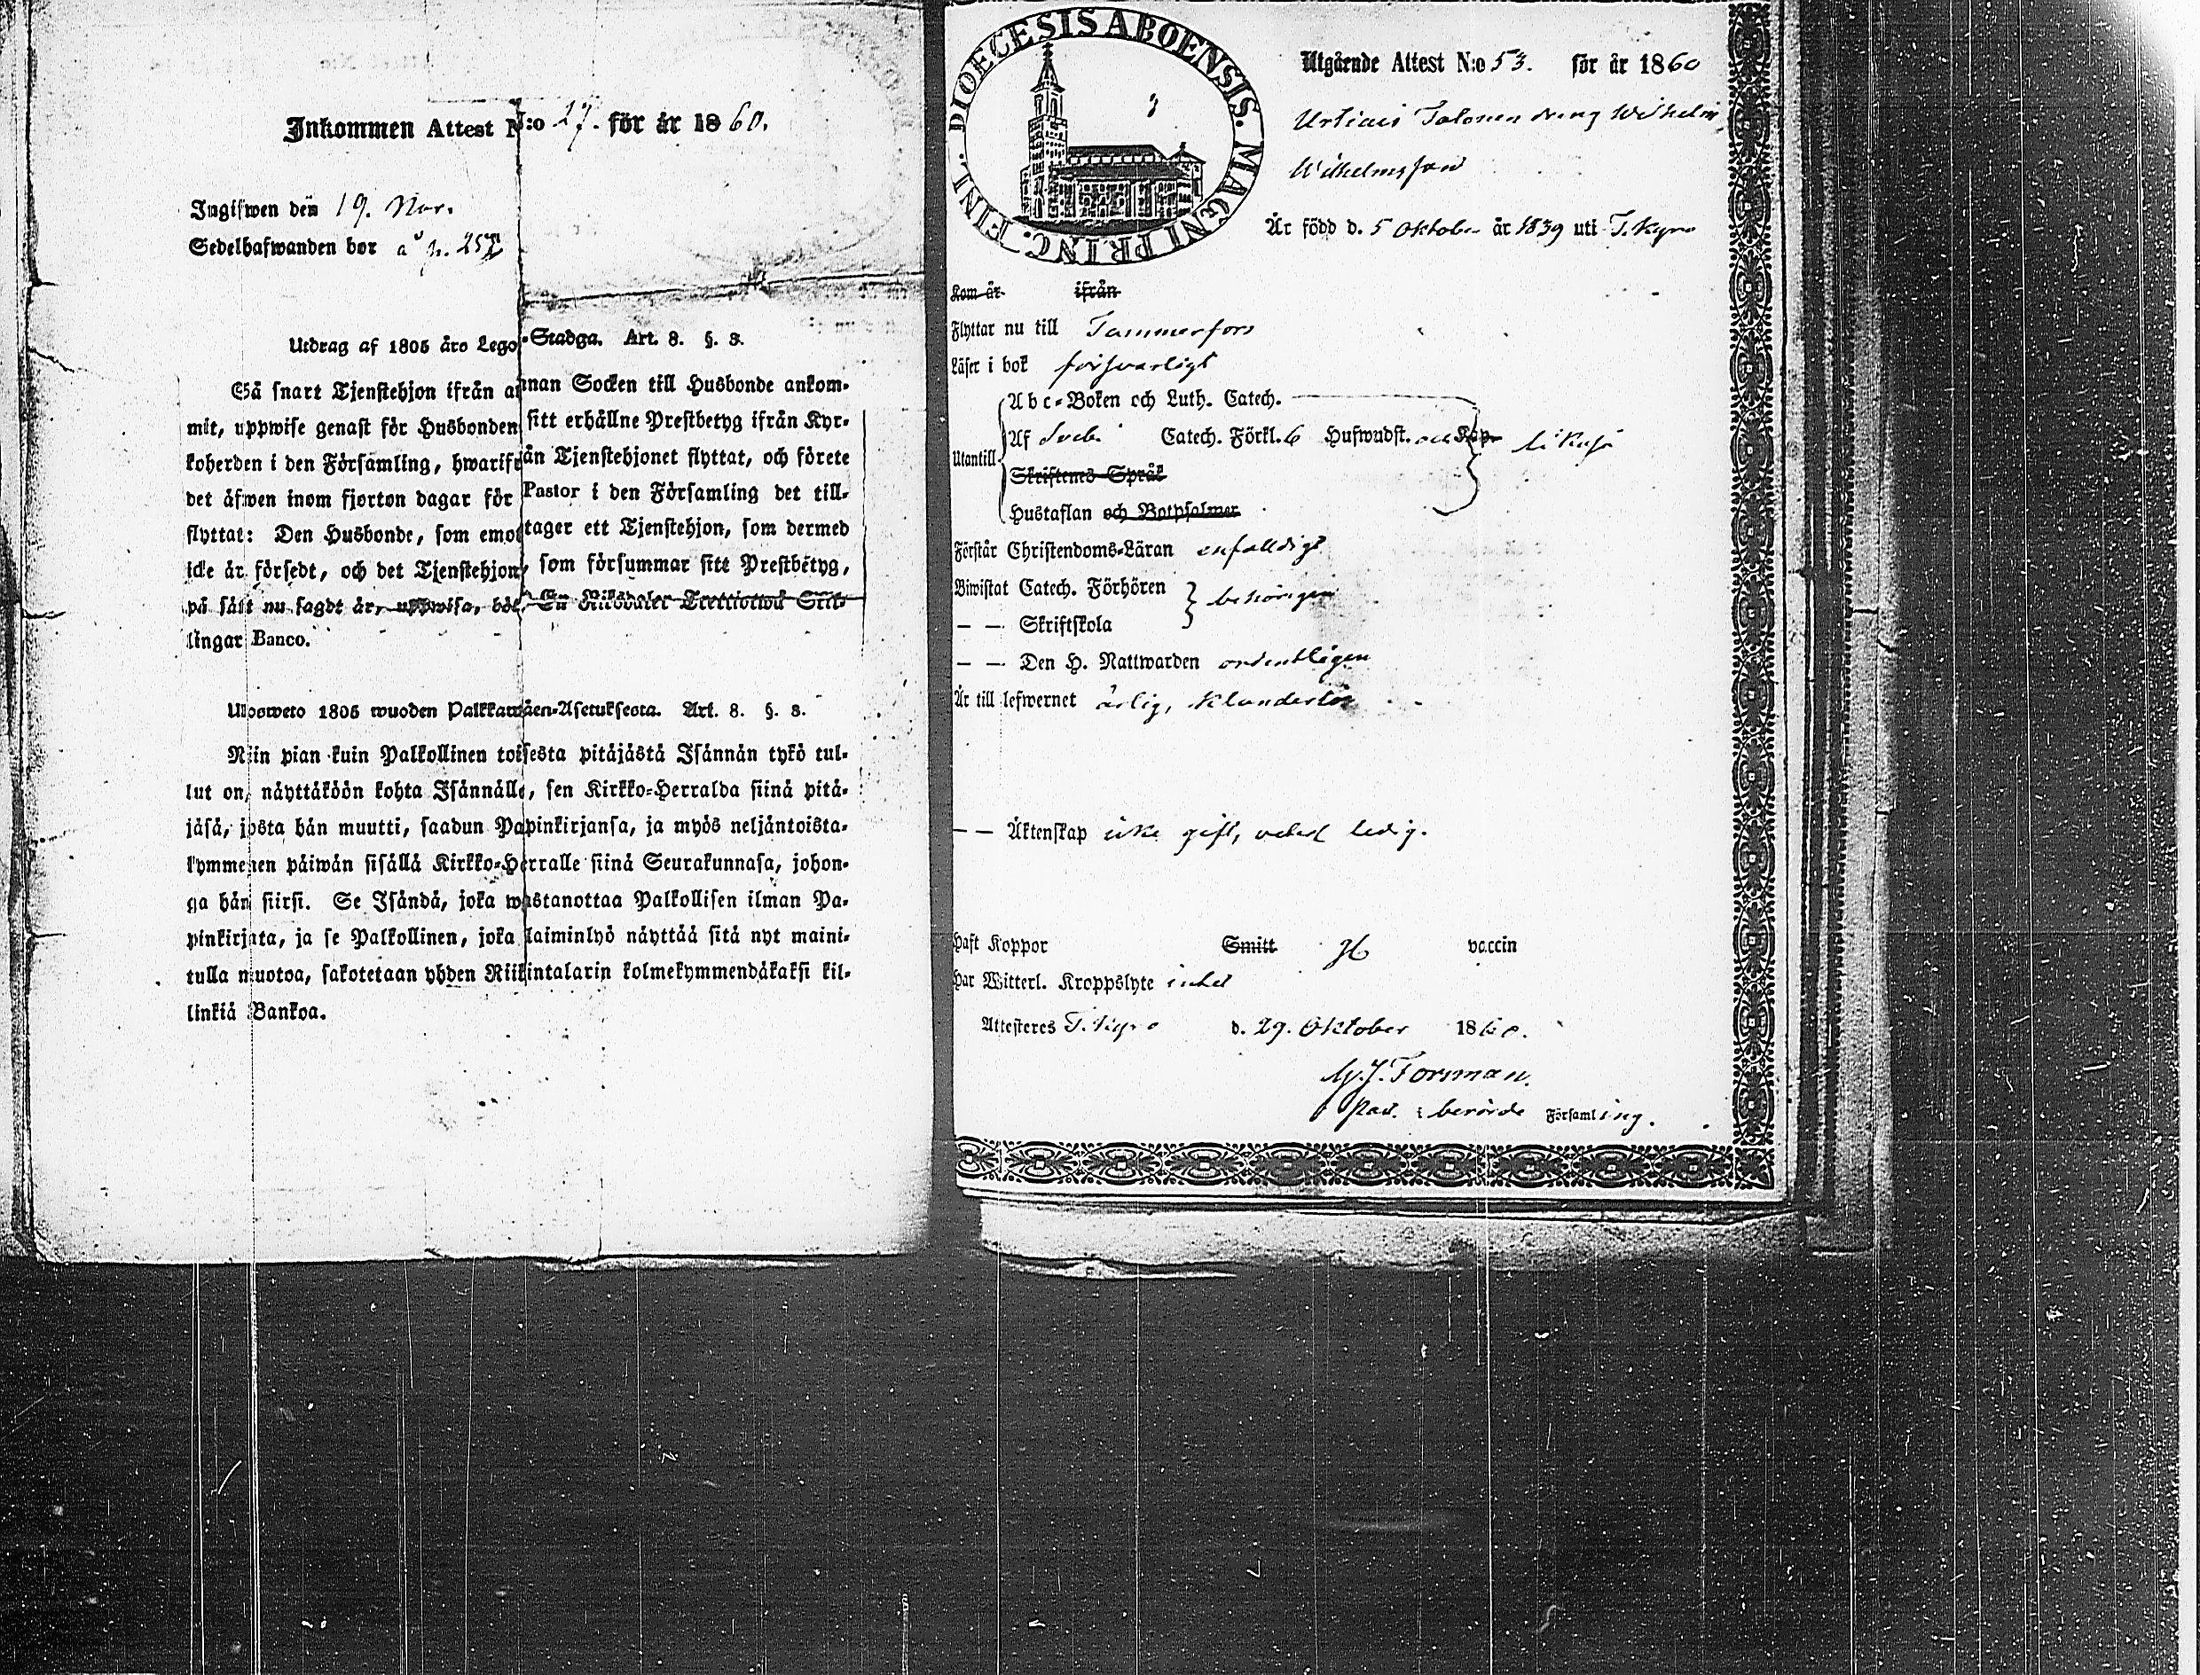 Inkommen Attest N:o 27. för år 1860.
Ingifwen den 19. Nov.
Sedelhafwanden bor a p. 257
Utdrag af 1805 års Lego-Stadga. Art. 8. §. 3.
Så snart Tjenstehjon ifrån annan Socken till Husbonde ankom-
mit, uppwise genast för Husbonden sitt erhållne Prestbetyg ifrån Kyr-
koherden i den Församling, hwarifrån Tjenstehjonet flyttat, och förete
det äfwen inom fjorton dagar för Pastor i den Församling det till-
flyttat: Den Husbonde, som emottager ett Tjenstehjon, som dermed
icke är försedt, och det Tjenstehjon, som försummar sitt Prestbetyg,
på sätt nu sagdt är, uppwisa, böte En Riksdaler Trettiotwå Skil-
lingar Banco.
Uloosweto 1805 wuoden Palkkawäen-Asetuksesta. Art. 8. §. 3.
Niin pian kuin Palkollinen toisesta pitäjästä Isännän tykö tul-
lut on, näyttäköön kohta Isännälle, sen Kirkko-Herralda siinä pitä-
jäsä, josta hän muutti, saadun Papinkirjansa, ja myös neljäntoista-
kymmenen päiwän sisällä Kirkko-Herralle siinä Seurakunnasa, johon-
ga hän siirsi. Se Isändä, joka wastanottaa Palkollisen ilman Pa-
pinkirjata, ja se Palkollinen, joka laiminlyö näyttää sitä nyt maini-
tulla muotoa, sakotetaan yhden Riikintalarin kolmekymmendäkaksi kil-
linkiä Bankoa.
DIOECESIS ABOENSIS. MAGNI PRINC. FINL.
Utgående Attest N:o 53. för år 1860
Talonen dreng Wilhelm
Wilhelmsson
Är född d. 5 Oktober år 1839 uti T. Kyro
Kom år ifrån
Flyttar nu till Tammerfors
Läser i bok försvarligt
Utantill
Abc-Boken och Luth. Catech.
Af Svebi Catech. Förkl. 6 Hufwudst. Kap. likaså
Skriftenes Språk
Hustaflan och Botpsalmer
Förstår Christendoms-Läran enfalldigt
Biwistat Catech. Förhören behörigen
— — Skriftskola
— — Den H. Nattwarden ordentligen
Är till lefwernet ärlig, klanderlös
— — Äktenskap icke gift, ledig.
Haft Koppor Smitt vaccin
Har Witterl. Kroppslyte intet
Attesteres T. Kyro d. 29. Oktober 1860.
Forsman.
Past. i berörde Församling.